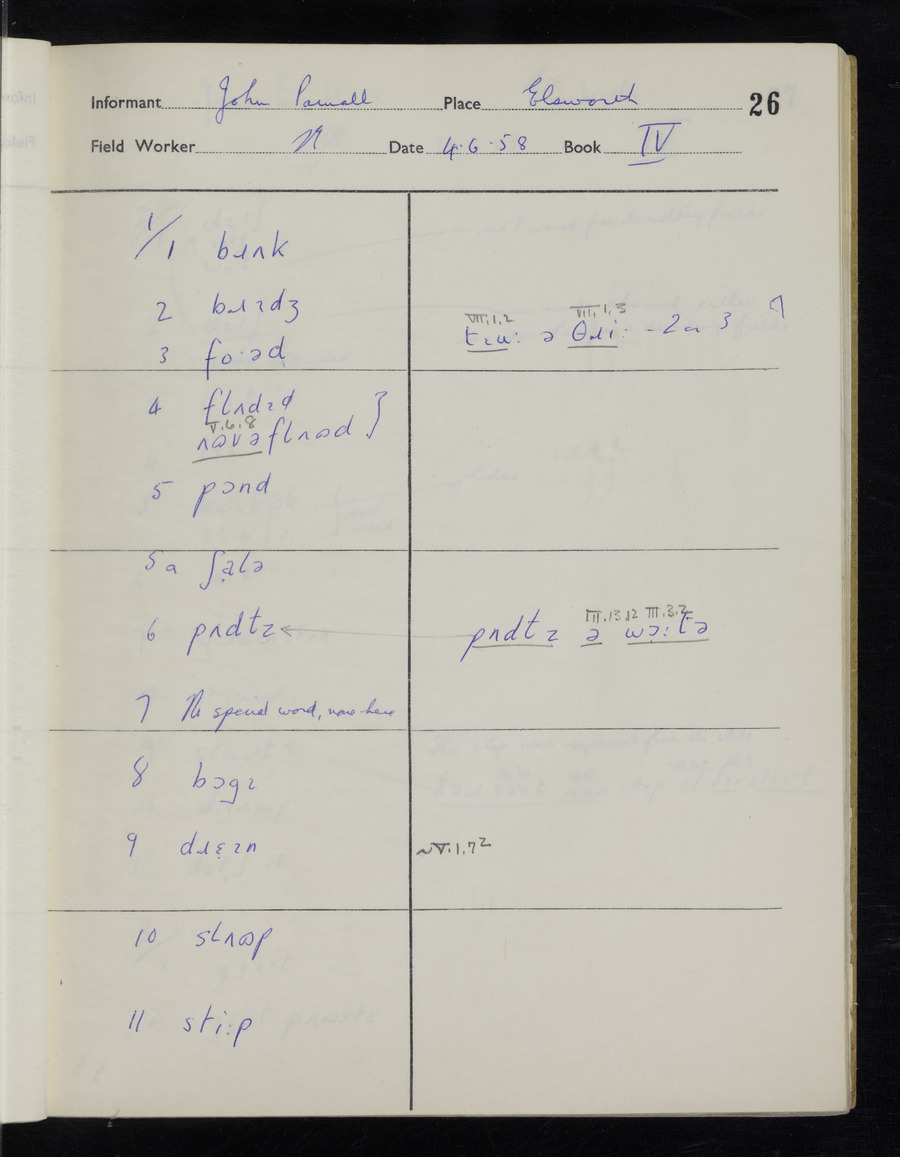 Informant John Parnall Place Elsworth 26
Field Worker N Date 4.6.58 Book IV
1/1 bɹʌk
2 bɹɪdʒ
3 fo·əd
VII.1.2 VII.1.3
tɪu: ə θɹi: - 2 or 3
4 flʌdɪd
V.6.8
nɒvə flʌɒd }
5 pɔnd
5a ʃalə
6 pʌdtɪ
III.13.12 III.3.2
pʌdtɪ ə wɔ:tə
7 No special word, now-here
8 bɔgɪ
9 dɹɛɪn
~V.1.7²
10 slʌɒp
11 sti:p